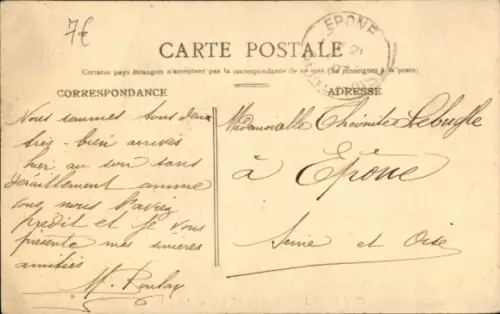 7€
EPONE
21
CARTE POSTALE
Certains pays étrangers n'acceptent pas la correspondance de ce côté (Se renseigner à la poste)
CORRESPONDANCE
ADRESSE
Nous sommes tous deux
très-bien arrivés
hier au soir sans
déraillement comme
vous nous l'aviez
prédit et je vous
présente mes sincères
amitiés
M.
Mademoiselle
à Epône
Seine et Oise